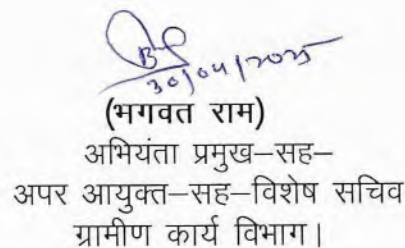 30/04/2025
(भगवत राम)
अभियंता प्रमुख–सह–
अपर आयुक्त–सह–विशेष सचिव
ग्रामीण कार्य विभाग।